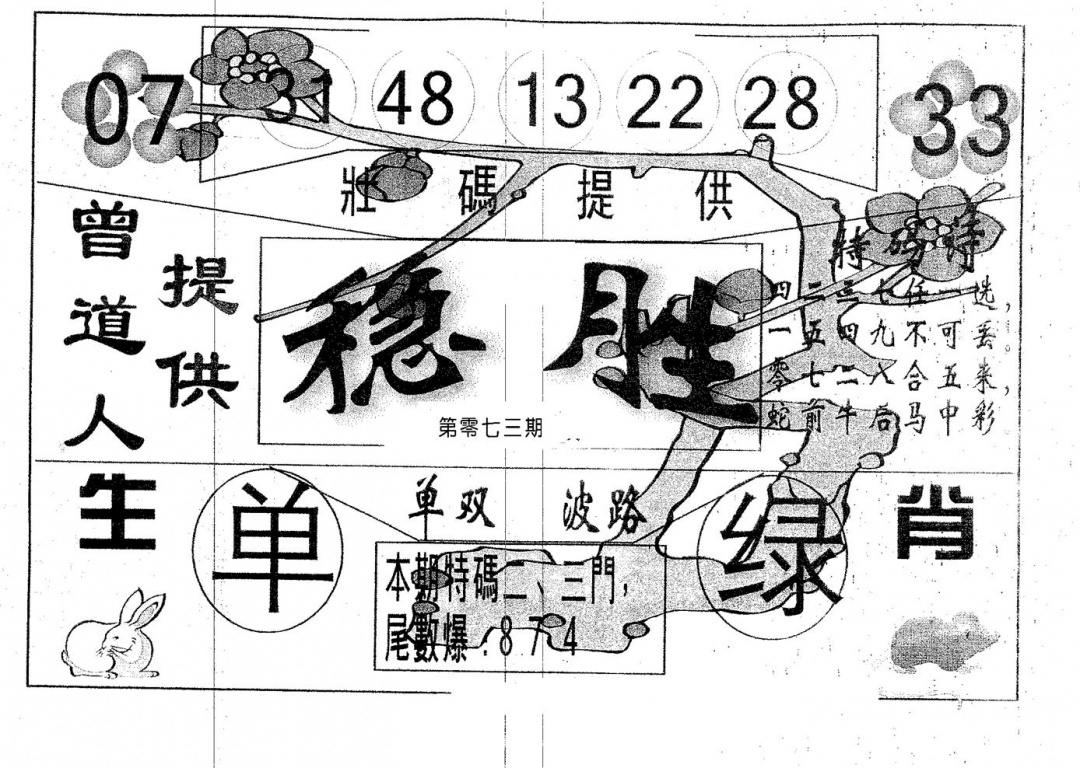 07 31 48 13 22 28 33
壯碼提供
曾道人
提供
特码诗
四二三七任一选，
一五四九不可丢。
零七二八合五来，
蛇前牛后马中彩
稳胜
第零七三期
生
单
单双 波路
绿
肖
本期特碼二、三門，
尾數爆：8 7 4